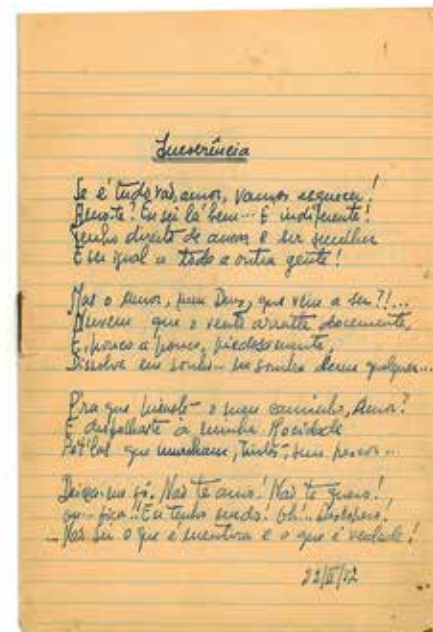 Incoerência
Se é tudo vão, amor, vamos esquecer!
Amo-te? Eu sei lá bem... É indiferente!
Tenho direito de amar e ser mulher
E ser igual a toda a outra gente!
Mas o Amor, meu Deus, que vem a ser?!...
Nuvem que o vento arrasta docemente,
E, pouco a pouco, piedosamente,
Dissolve em sonho... em sombra
Pra que vieste o meu caminho, Amor?
E desfolhaste a minha Mocidade
que murcham, sem
Deixa-me só. Não te amo! Não te quero!,
ou... fica!! Eu tenho medo! Oh!.. desespero!
... Não sei o que é mentira e o que é verdade!